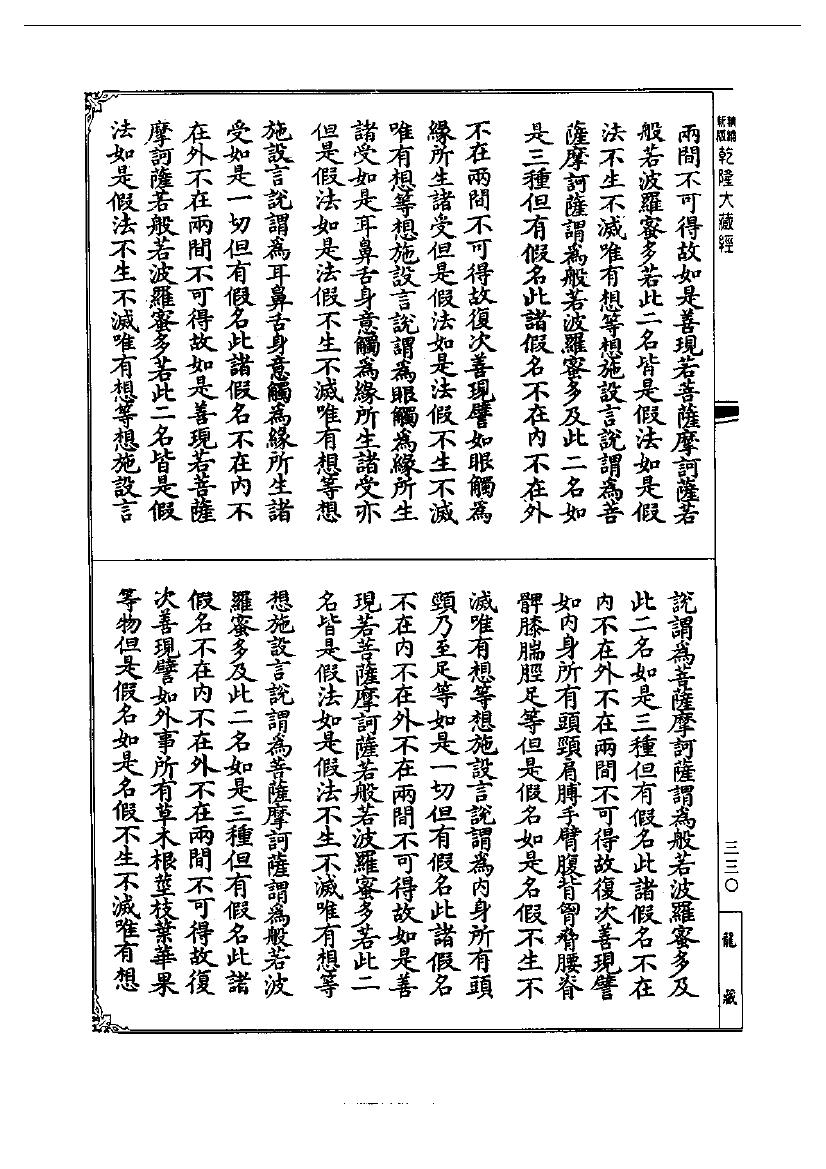 新編
新版
乾隆大藏經
兩間不可得故如是善現若菩薩摩訶薩若
般若波羅蜜多若此二名皆是假法如是假
法不生不滅唯有想等想施設言說謂為菩
薩摩訶薩謂為般若波羅蜜多及此二名如
是三種但有假名此諸假名不在內不在外
不在兩間不可得故復次善現譬如眼觸為
緣所生諸受但是假法如是法假不生不滅
唯有想等想施設言說謂為眼觸為緣所生
諸受如是耳鼻舌身意觸為緣所生諸受亦
但是假法如是法假不生不滅唯有想等想
施設言說謂為耳鼻舌身意觸為緣所生諸
受如是一切但有假名此諸假名不在內不
在外不在兩間不可得故如是善現若菩薩
摩訶薩若般若波羅蜜多若此二名皆是假
法如是假法不生不滅唯有想等想施設言
說謂為菩薩摩訶薩謂為般若波羅蜜多及
此二名如是三種但有假名此諸假名不在
內不在外不在兩間不可得故復次善現譬
如內身所有頭頸肩膊手臂腹背胷脅腰脊
髀膝腨脛足等但是假名如是名假不生不
滅唯有想等想施設言說謂為內身所有頭
頸乃至足等如是一切但有假名此諸假名
不在內不在外不在兩間不可得故如是善
現若菩薩摩訶薩若般若波羅蜜多若此二
名皆是假法如是假法不生不滅唯有想等
想施設言說謂為菩薩摩訶薩謂為般若波
羅蜜多及此二名如是三種但有假名此諸
假名不在內不在外不在兩間不可得故復
次善現譬如外事所有草木根莖枝葉華果
等物但是假名如是名假不生不滅唯有想
三三〇
龍藏